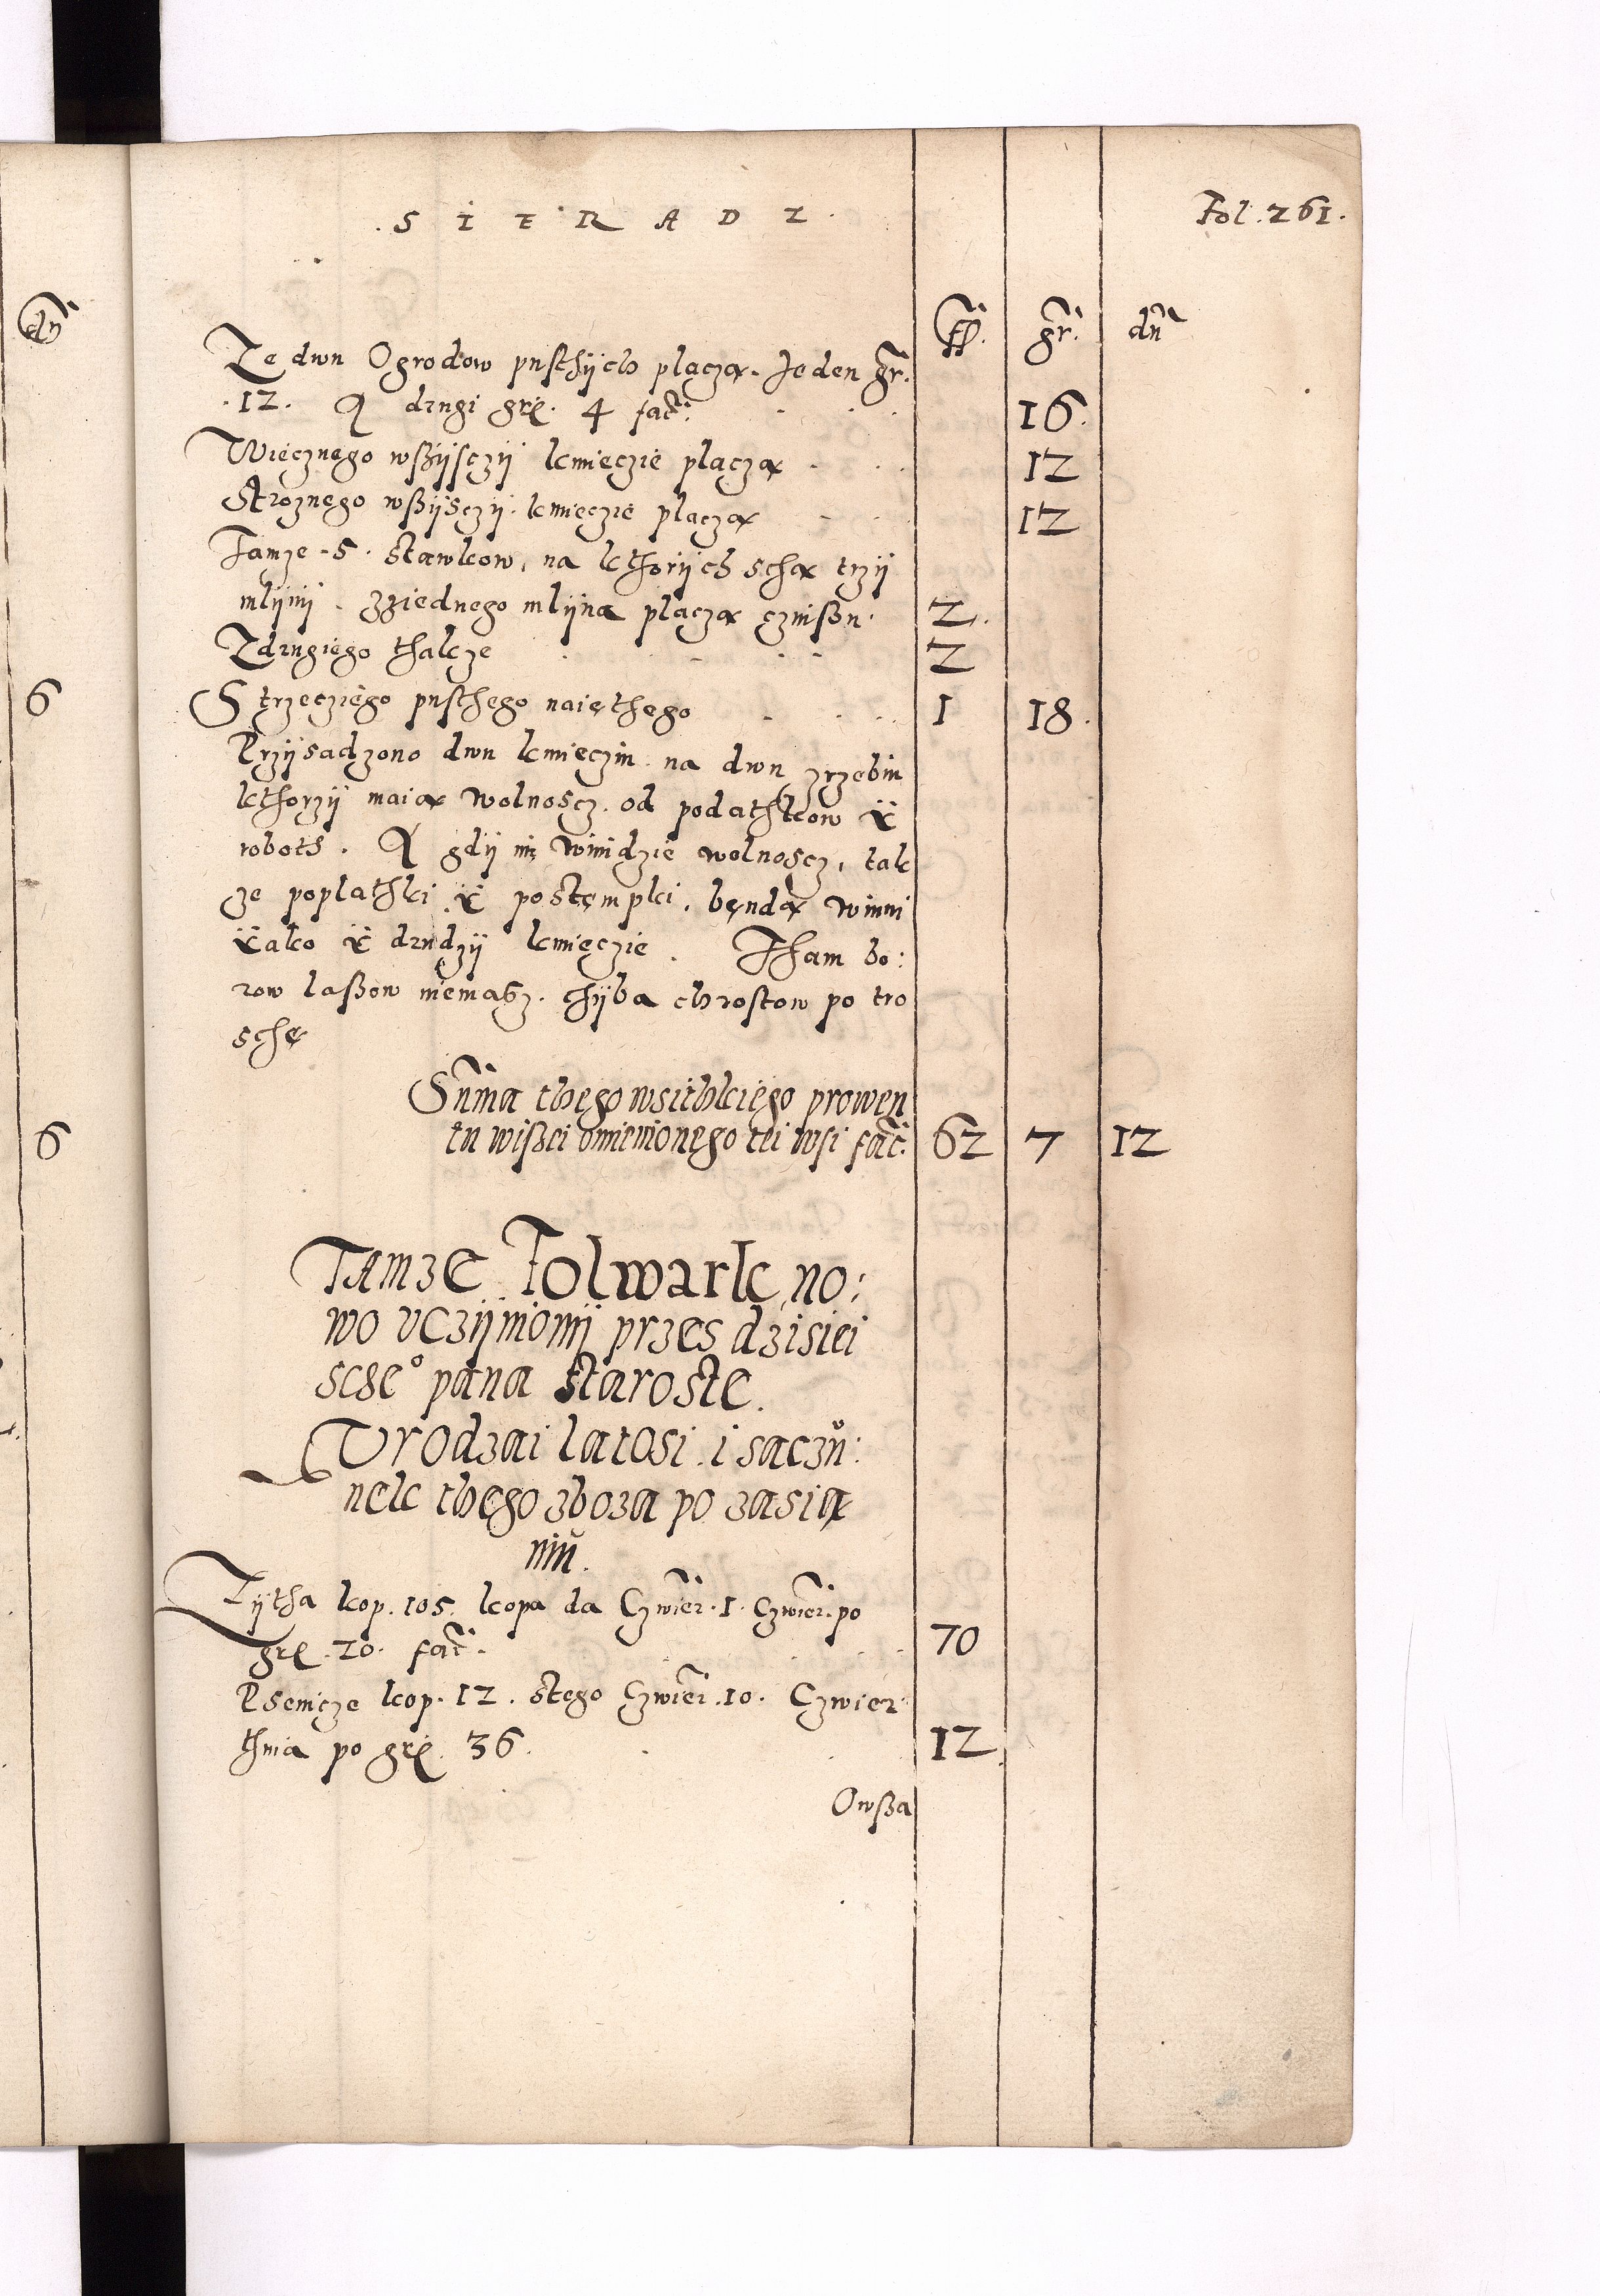 . S I E R A D Z .
Fol. 261.
dn̄
ff. gr. dn̄
Ze dwu Ogrodow pusthijch placzą. Jeden gr.
.12. A drugi grę. 4 fac. 16.
Wiecznego wßijsczij kmieczie placzą 12
Stroznego wßijsczij kmieczie placzą 12
Tamze .5. stawkow, na kthorijch schą trzij
mlijnij. Zziednego mlijna placzą czinßu. 2.
Zdrugiego thakze 2
6
S trzecziego pusthego naięthego 1 18.
Przijsadzono dwu kmieczin na dwu zrzebiu
kthorzij maią wolnoscz. od podathkow ÿ
roboth. A gdij im winidzie wolnoscz, tak
ze poplathki ÿ postempki, bęndą winni
ÿako ÿ drudzij kmięczie. Tham bo:
row laßow niemasz. chijba chrostow po tro
schę
Suma thego wsithkiego prowen
6
tu wißei omienionego tei wsi fac. 62 7 12
Tamze Folwark no:
wo uczijnionij przes dzisiei
sche° pana staroste.
Urodzai latosi. i saczu:
nek thego zboza po zasią
niu.
Zytha kop. 105. kopa da Czwier. 1. Czwier. po
grę. 20. fac. 70
Psenicze kop. 12. stego Czwier. 10. Czwier
thnia po grę. 36. 12
Owßa